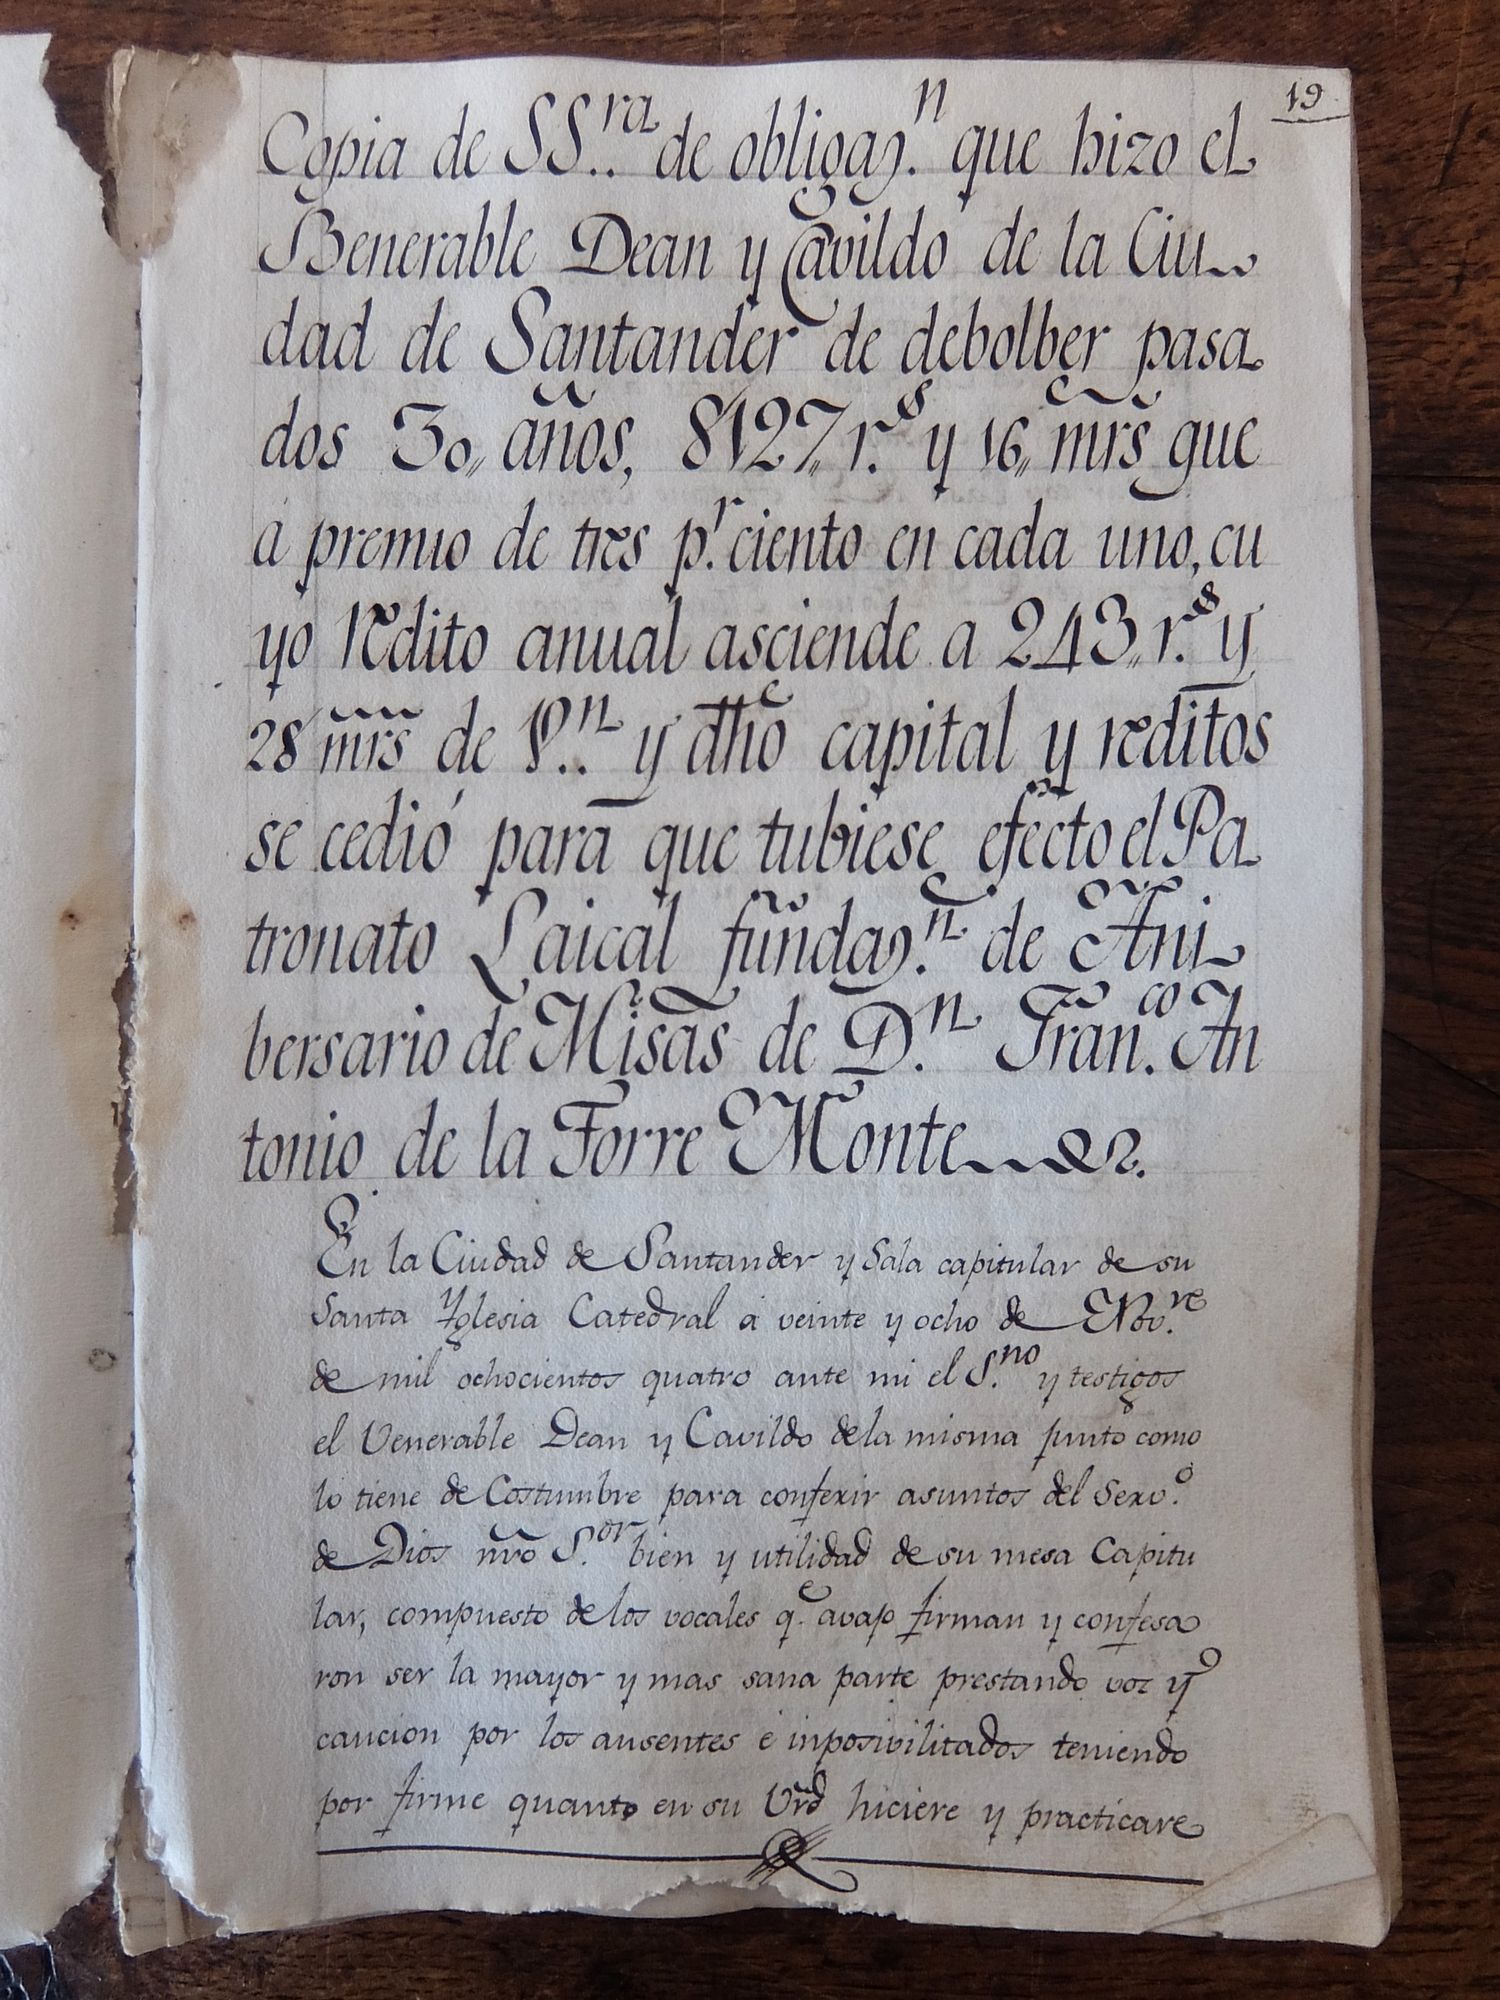 19
Copia de SS..ra de obligaz.n que hizo el
Benerable Dean y Cavildo de la Ciu
dad de Santander de debolber pasa
dos 30,, años, 8127,, r.s y 16,, mrs que
á premio de tres p.r ciento en cada uno, cu
yo redito anual asciende a 243,, r.s y
28 mrs de V..n y dho capital y reditos
se cedió para que tubiese efecto el Pa
tronato Laical fundaz.n de Ani
bersario de Misas de D.n Fran.co An
tonio de la Torre Monte
En la Ciudad de Santander y Sala capitular de su
Santa Yglesia Catedral á veinte y ocho de Nov.re
de mil ochocientos quatro ante mi el S.no y testigos
el Venerable Dean y Cavildo de la misma junto como
lo tiene de Costumbre para conferir asuntos del Serv.o
de Dios nro S.or bien y utilidad de su mesa Capitu
lar, compuesto de los vocales q.e avajo firman y confesa
ron ser la mayor y mas sana parte prestando voz y
caucion por los ausentes é inposivilitados teniendo
por firme quanto en su Vrd hiciere y practicare